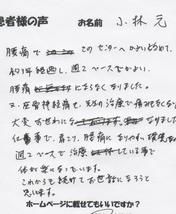 患者様の声 お名前 小林 元
腰痛で このセンターへかよい初めて、
約1年経過し、週2ペースでかよい、
腰痛 にならなくなりました。
又、坐骨神経痛も、見なり治療で痛みもなく
大変
仕事で、肩こり、腰痛になりやすい環境
週2ペースで治療 している事で
体が楽になっています。
これからも続けてお世話になろうと
思います。
ホームページに載せてもいいですか?